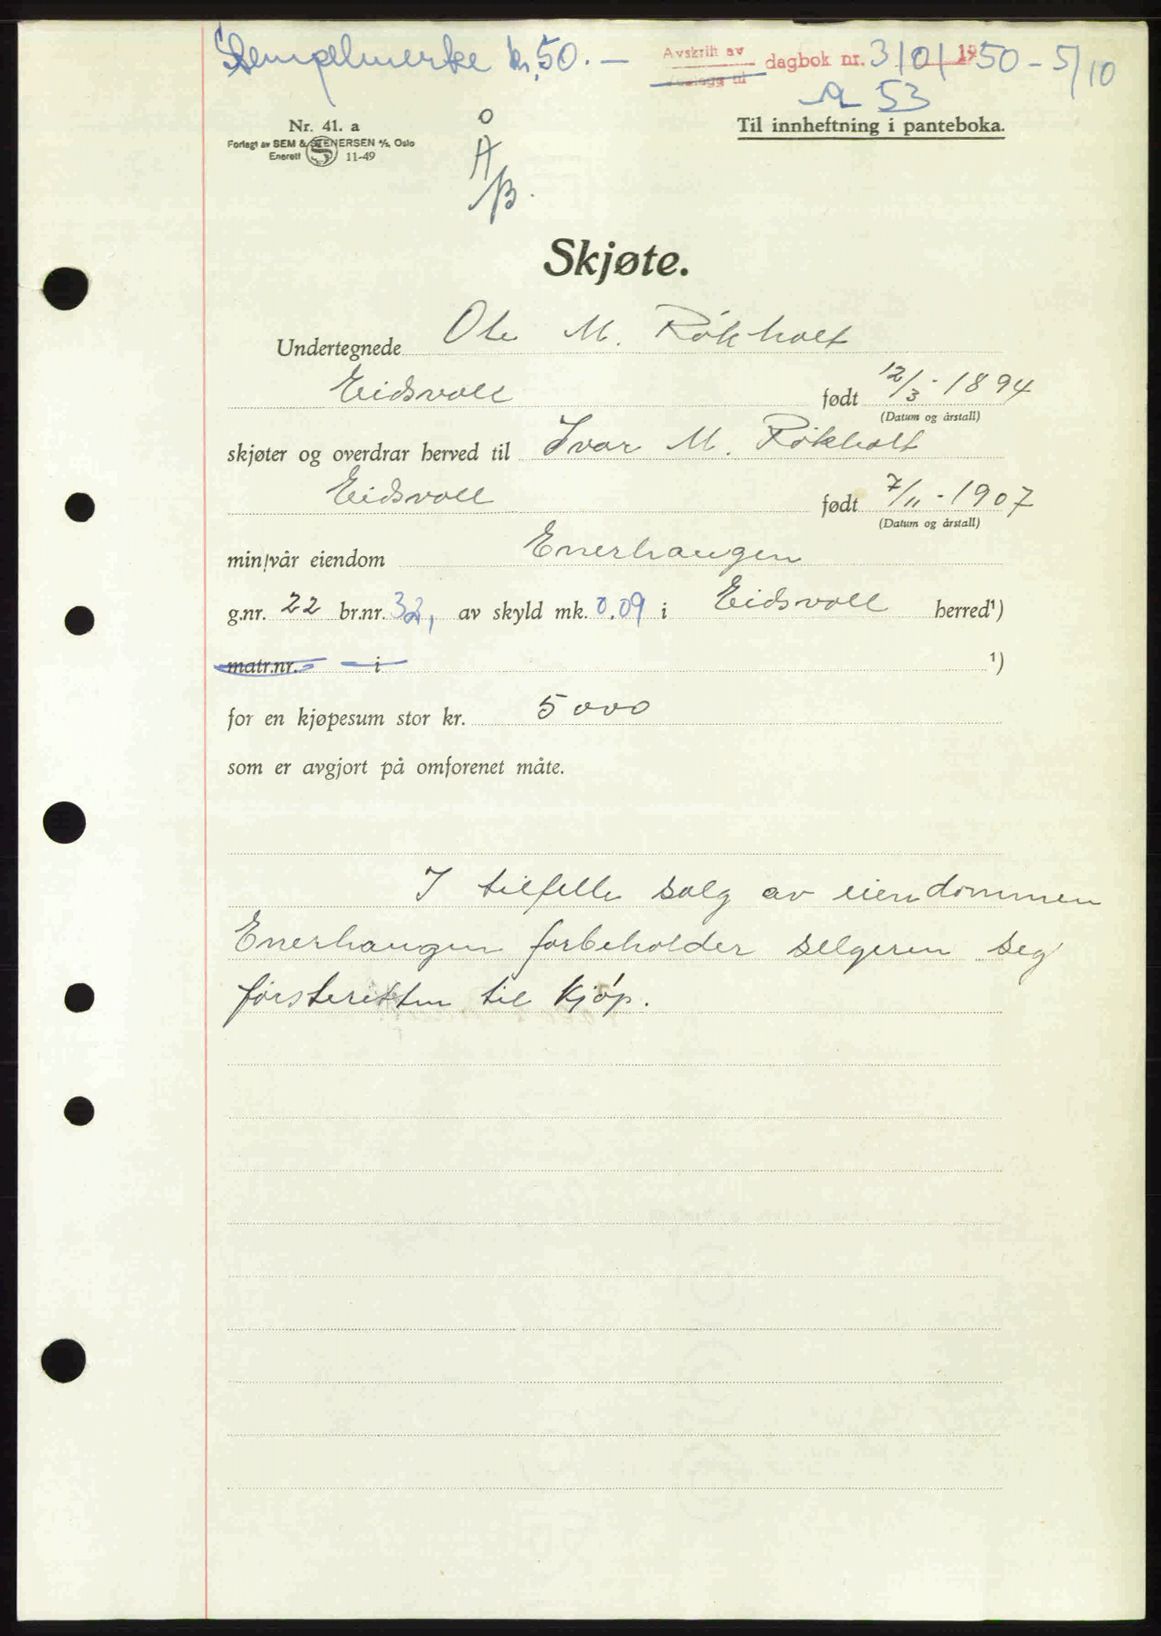 Stempelmerke kr. 50.—
Avskrift av dagbok nr. 3101 1950 - 5/10
A 53
Nr. 41. a
Forlagt av SEM & STENERSEN A/S, Oslo
Enerett 11-49
Til innheftning i panteboka.
Skjøte.
Undertegnede Ole M. Røkholt
Eidsvoll født 12/3 - 1894
(Datum og årstall)
skjøter og overdrar herved til Ivar M. Røkholt
Eidsvoll født 7/11 - 1907
(Datum og årstall)
min/vår eiendom Enerhaugen
g.nr. 22 br.nr. 32, av skyld mk. 0.09 i Eidsvoll herred¹)
matr.nr. i ¹)
for en kjøpesum stor kr. 5000
som er avgjort på omforenet måte.
I tilfelle salg av eiendommen
Enerhaugen forbeholder selgeren seg
førsteretten til kjøp.